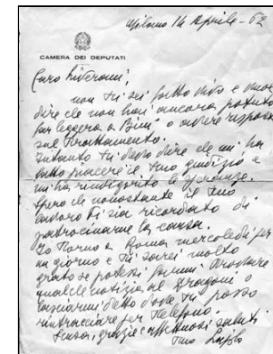 Milano 14 Aprile - 62
CAMERA DEI DEPUTATI
Caro Liverani,
non ti sei fatto vivo e vuol
dire che non hai ancora potuto
far leggere a Bini o avere risposta
sul trattamento.
Intanto ti devo dire che mi ha
fatto piacere il tuo giudizio e
mi ha rinvigorito le speranze.
Spero che nonostante il tuo
lavoro ti sia ricordato di
patrocinarne la causa.
Io torno a Roma mercoledì per
un giorno e ti sarei molto
grato se potessi farmi trovare
qualche notizia al
lasciarmi detto dove ti posso
rintracciare per telefono.
Scusa, grazie e affettuosi saluti
Tuo